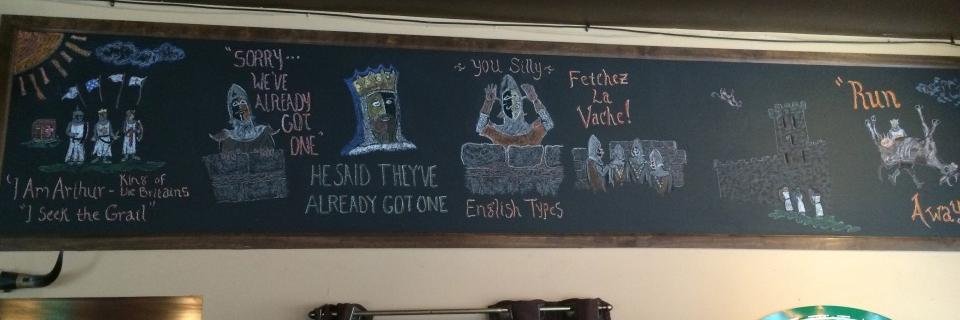 "I Am Arthur - King of
the Britains
"I Seek the Grail"
"SORRY...
WE'VE
ALREADY
GOT
ONE"
HE SAID THEY'VE
ALREADY GOT ONE
You Silly
English Types
Fetchez
La
Vache!
"Run
Away